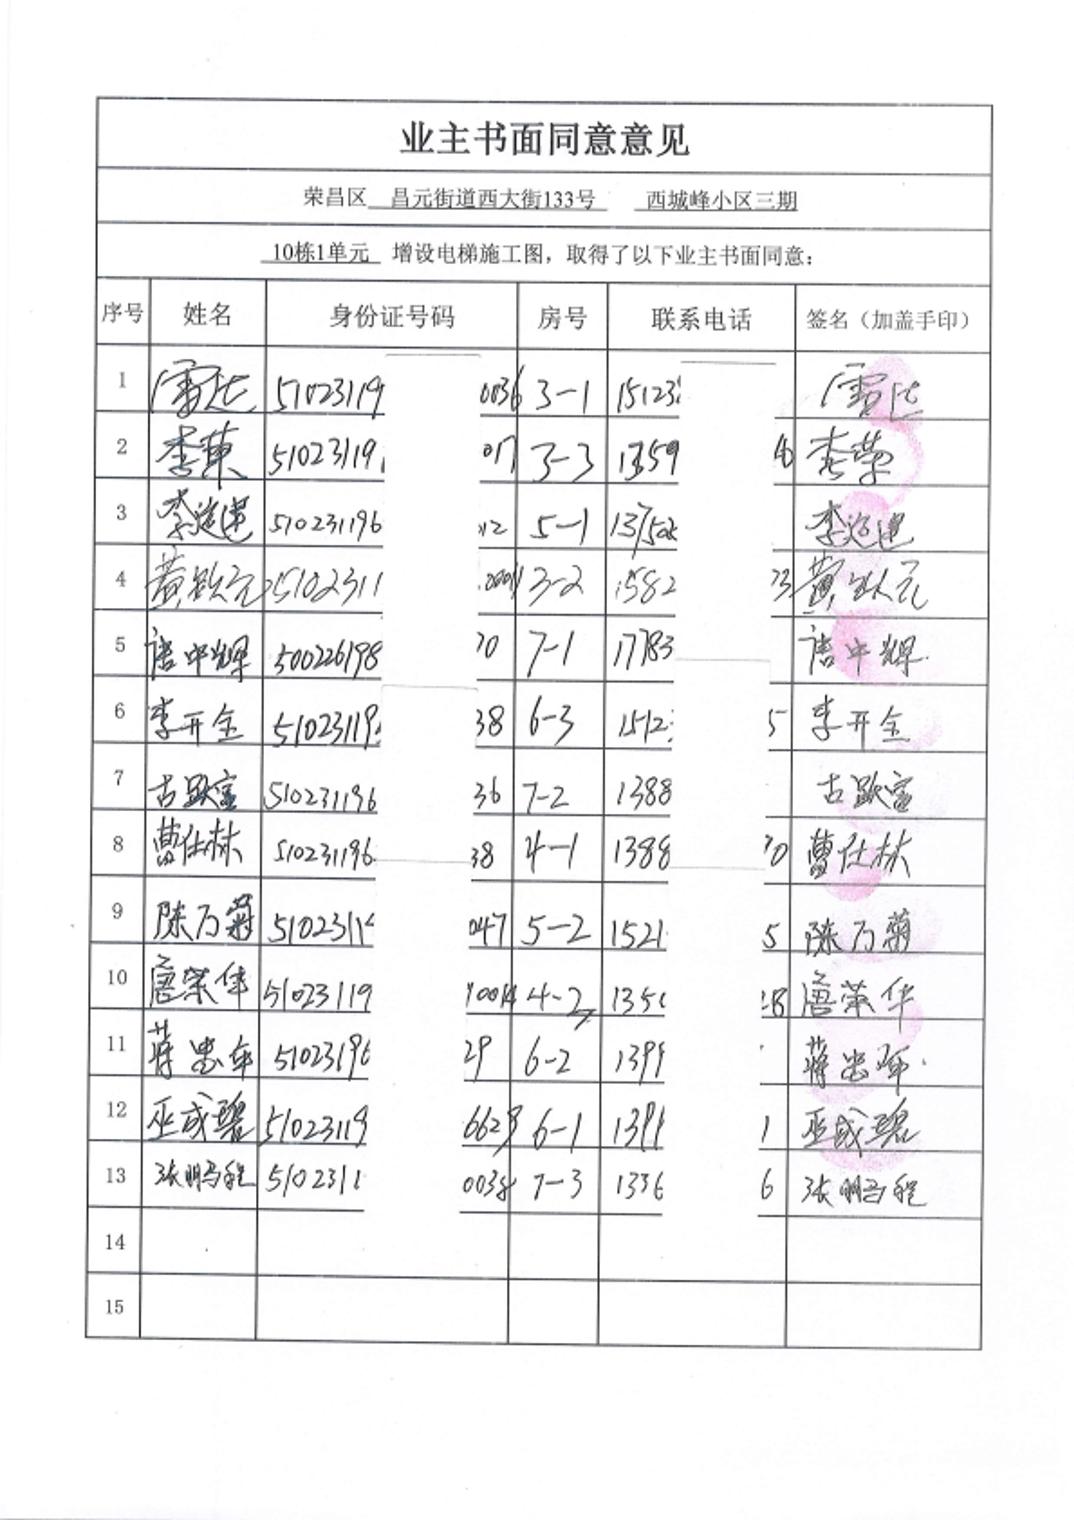 业主书面同意意见
荣昌区 昌元街道西大街133号 西城峰小区三期
10栋1单元 增设电梯施工图，取得了以下业主书面同意：
序号 姓名 身份证号码 房号 联系电话 签名（加盖手印）
1 51023119 0036 3-1 15123
2 李荣 51023119 3-3 1359 李荣
3 510231196 12 5-1 李
4 黄 5102311 3-2 1582 黄
5 唐中辉 500226198 70 7-1 17783 唐中辉
6 李开全 51023119 38 6-3 1512 5 李开全
7 古 510231196 36 7-2 1388 古
8 曹仕林 510231196 38 4-1 1388 70 曹仕林
9 陈万菊 5102311 047 5-2 1521 5 陈万菊
10 唐荣华 51023119 4-2 135 8 唐荣华
11 蒋忠 51023196 29 6-2 1399 蒋忠
12 巫成碧 51023119 662 6-1 1399 1 巫成碧
13 张明 5102311 003 7-3 1336 6 张明
14
15